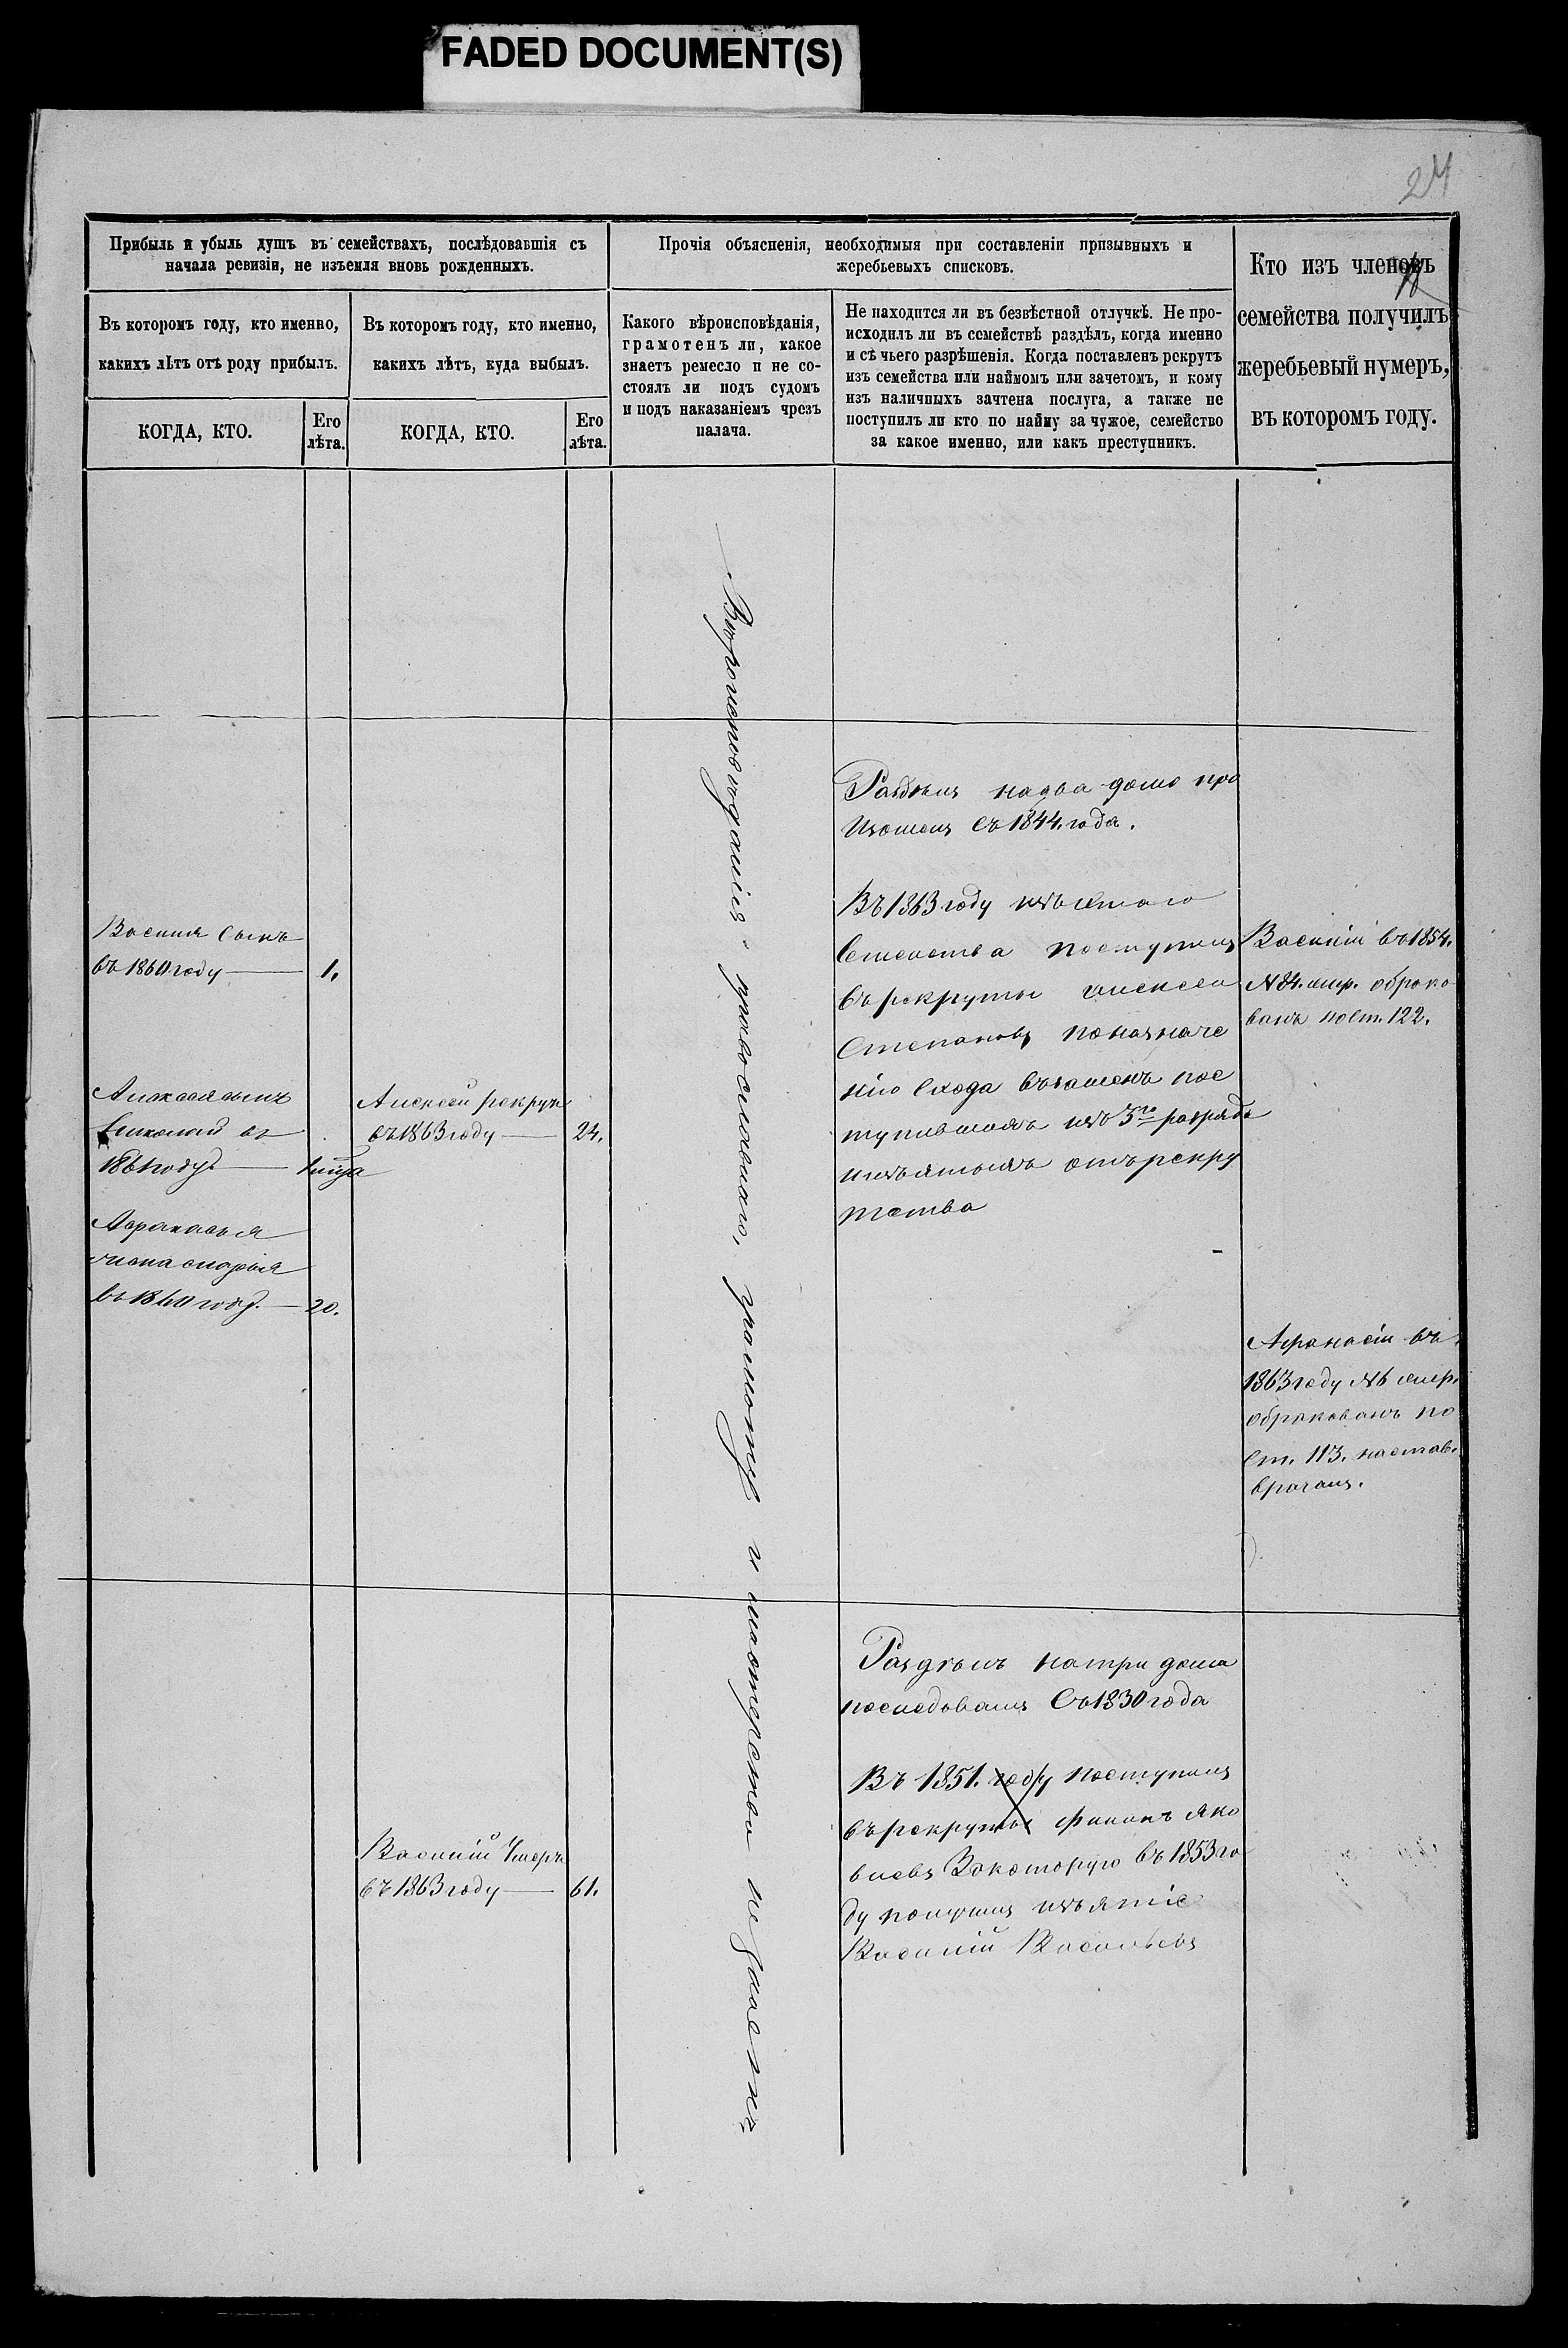 FADED DOCUMENT(S)
24
Прибыль и убыль душъ въ семействахъ, послѣдовавшія съ
начала ревизіи, не изъемля вновь рожденныхъ.
Въ которомъ году, кто именно,
какихъ лѣтъ отъ роду прибылъ.
КОГДА, КТО.
Его
лѣта.
Въ которомъ году, кто именно,
какихъ лѣтъ, куда выбылъ.
КОГДА, КТО.
Его
лѣта.
Прочія объясненія, необходимыя при составленіи призывныхъ и
жеребьевыхъ списковъ.
Какого вѣроисповѣданія,
грамотенъ ли, какое
знаетъ ремесло и не со-
стоялъ ли подъ судомъ
и подъ наказаніемъ чрезъ
палача.
Не находится ли въ безвѣстной отлучкѣ. Не про-
исходилъ ли въ семействѣ раздѣлъ, когда именно
и съ чьего разрѣшенія. Когда поставленъ рекрутъ
изъ семейства или наймомъ или зачетомъ, и кому
изъ наличныхъ зачтена послуга, а также не
поступилъ ли кто по найму за чужое, семейство
за какое именно, или какъ преступникъ.
Кто изъ членовъ
семейства получилъ
жеребьевый нумеръ,
въ которомъ году.
Василія сынъ
въ 1860 году — 1.
Алексея сынъ
Николай въ
1861 году —
Афанасья
жена Марья
въ 1860 году — 20.
Алексей рекрутъ
въ 1863 году — 24.
Василій Умеръ
въ 1863 году — 61.
Вѣроисповеданія православнаго, грамотѣ и мастерства незнаетъ
Раздѣлъ на два дома про
изошелъ съ 1844. года.
Въ 1863 году изъ сего
Семейства поступилъ
въ рекруты Алексей
Степановъ по назначе
нію схода взаменъ пос
тупившихъ изъ 3го разряда
изъятыхъ отъ рекру
тства
Василій въ 1854.
№ 84. жер. обрако
ванъ по ст. 122.
Афанасій въ
1863 году № 6 жер.
обракованъ по
ст. 113. настав.
врачамъ.
Раздѣлъ на три дома
последовалъ Съ 1830 года
Въ 1851. году поступилъ
въ рекруты Яко
влевъ За которую въ 1853 го
ду получилъ изъятіе
Василій Васильевъ